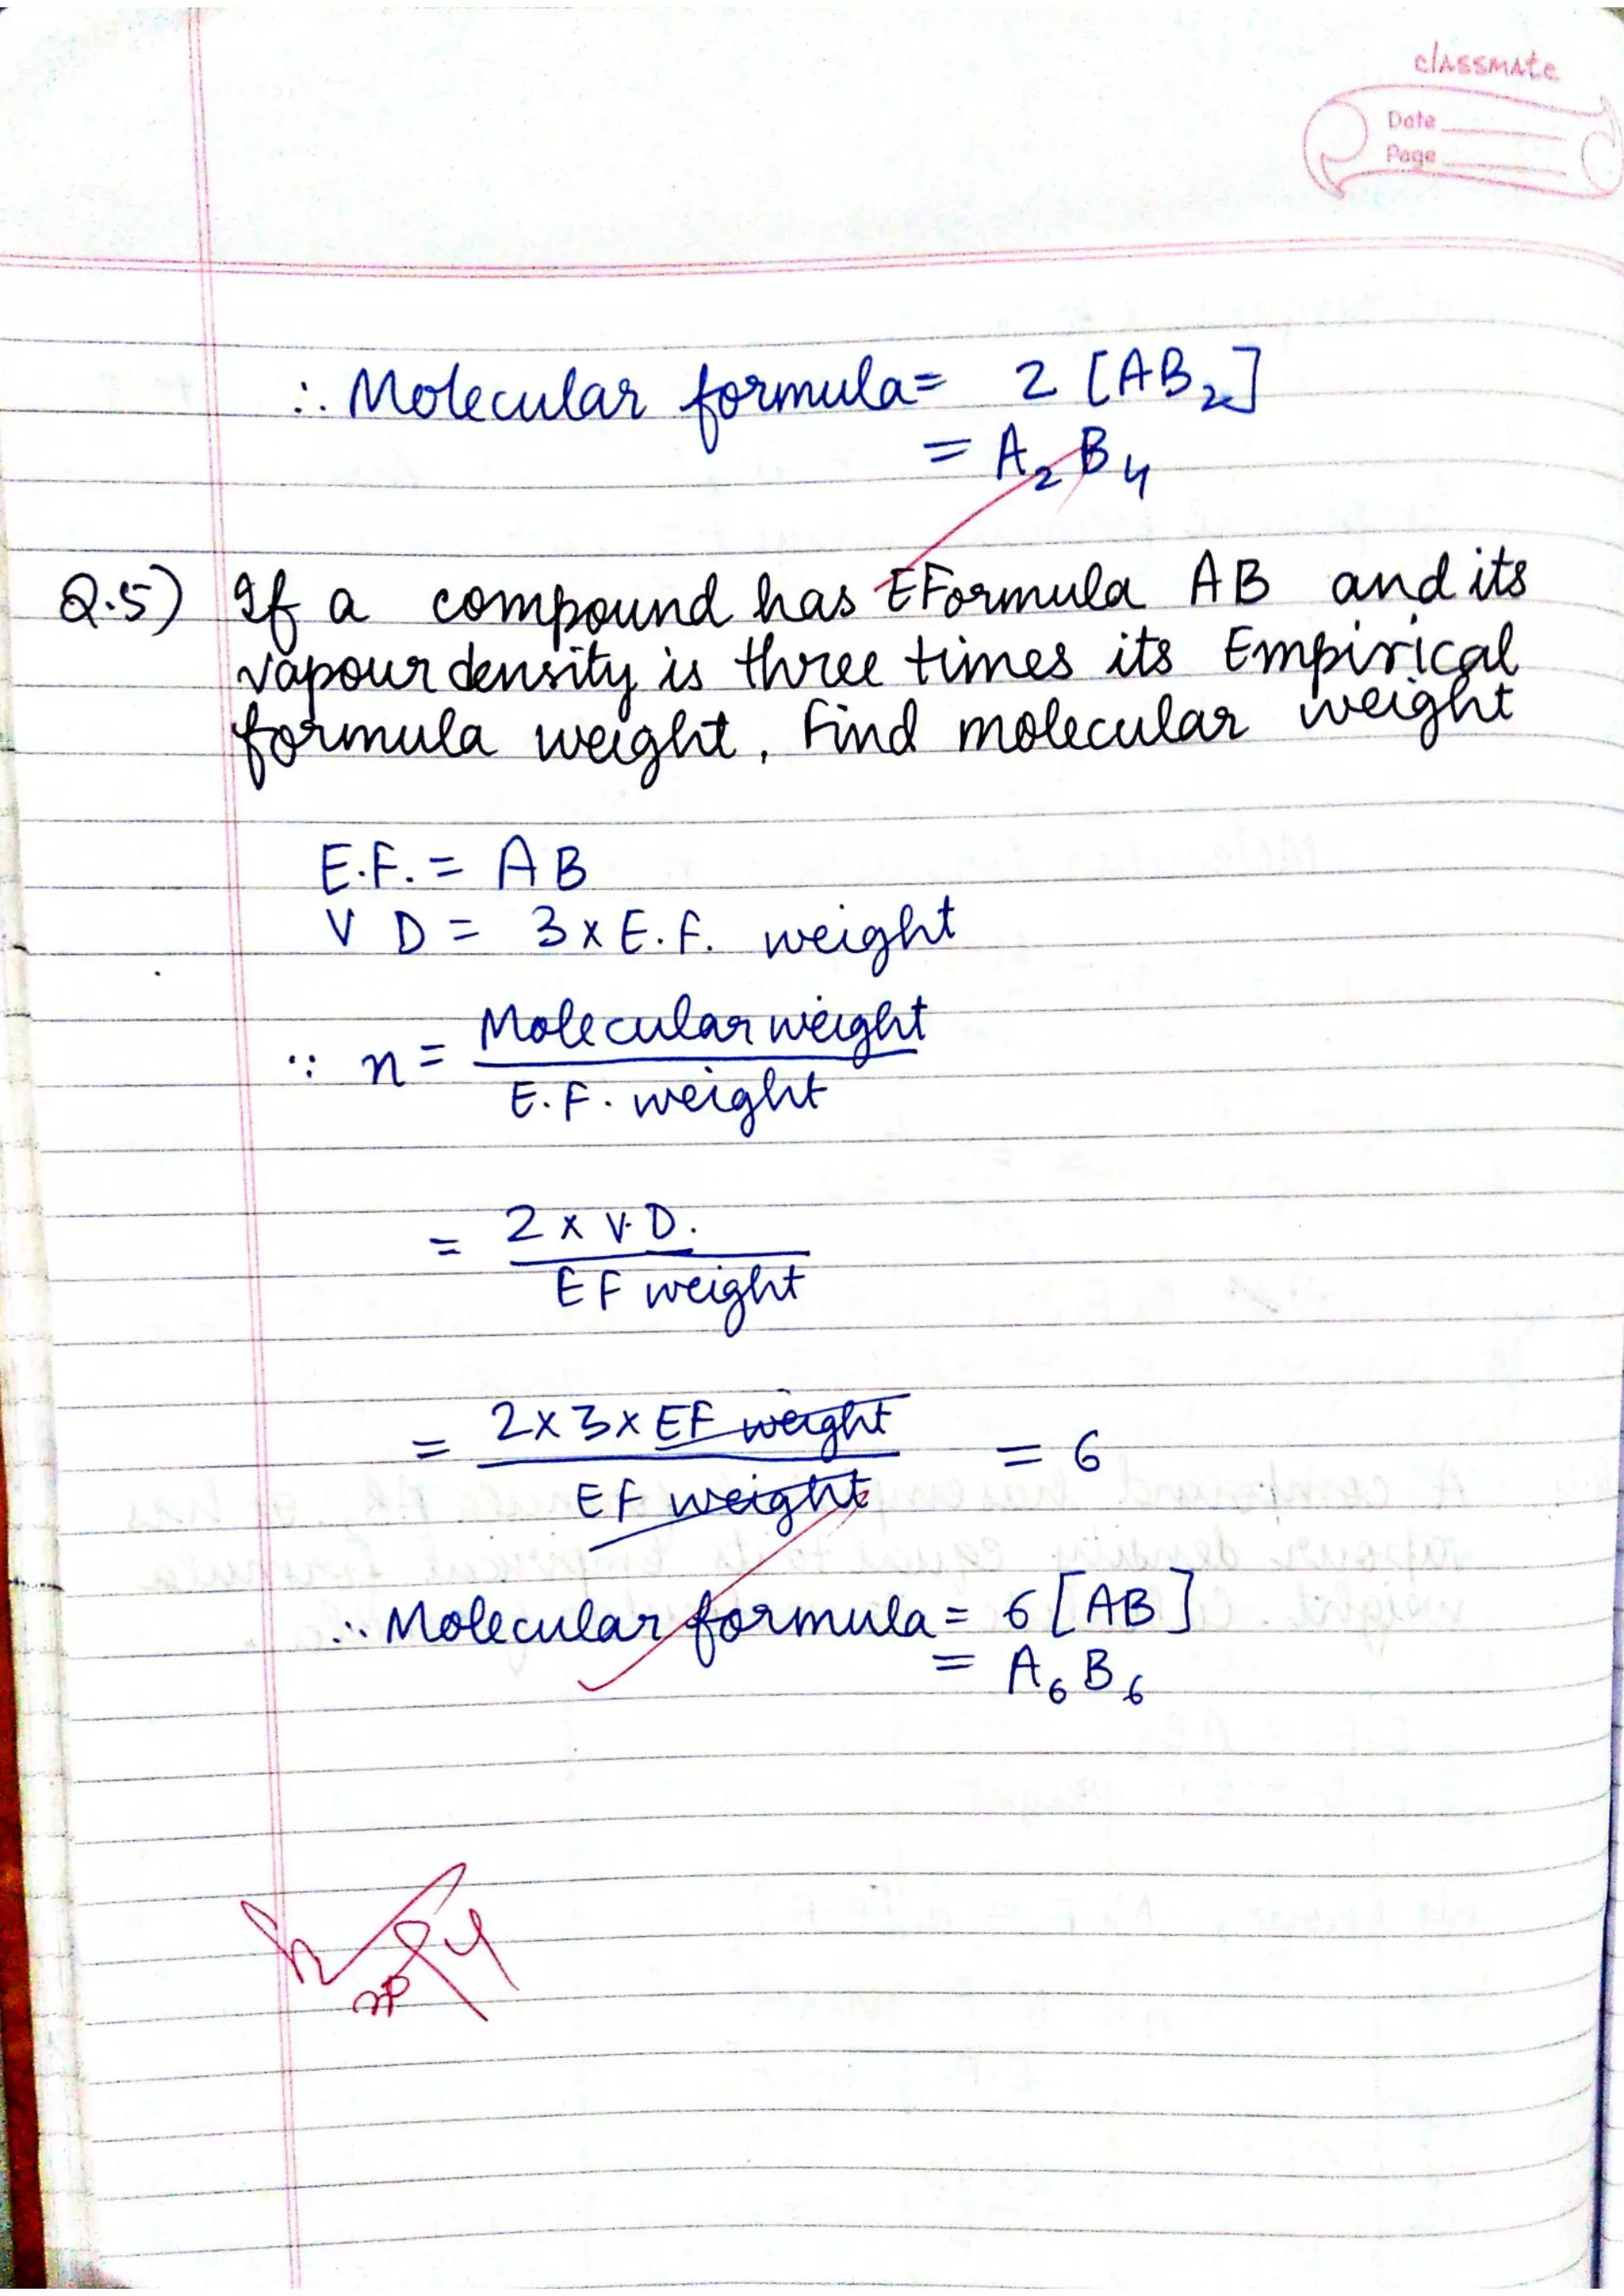 classmate
Date
Page
∴ Molecular formula = 2 [AB₂]
= A₂B₄
Q.5) If a compound has EFormula AB and its
vapour density is three times its Empirical
formula weight, Find molecular weight
E.F. = AB
V D = 3 x E.F. weight
∵ n = Molecular weight
E.F. weight
= 2 x V.D.
EF weight
= 2 x 3 x EF weight = 6
EF weight
∴ Molecular formula = 6 [AB]
= A₆B₆